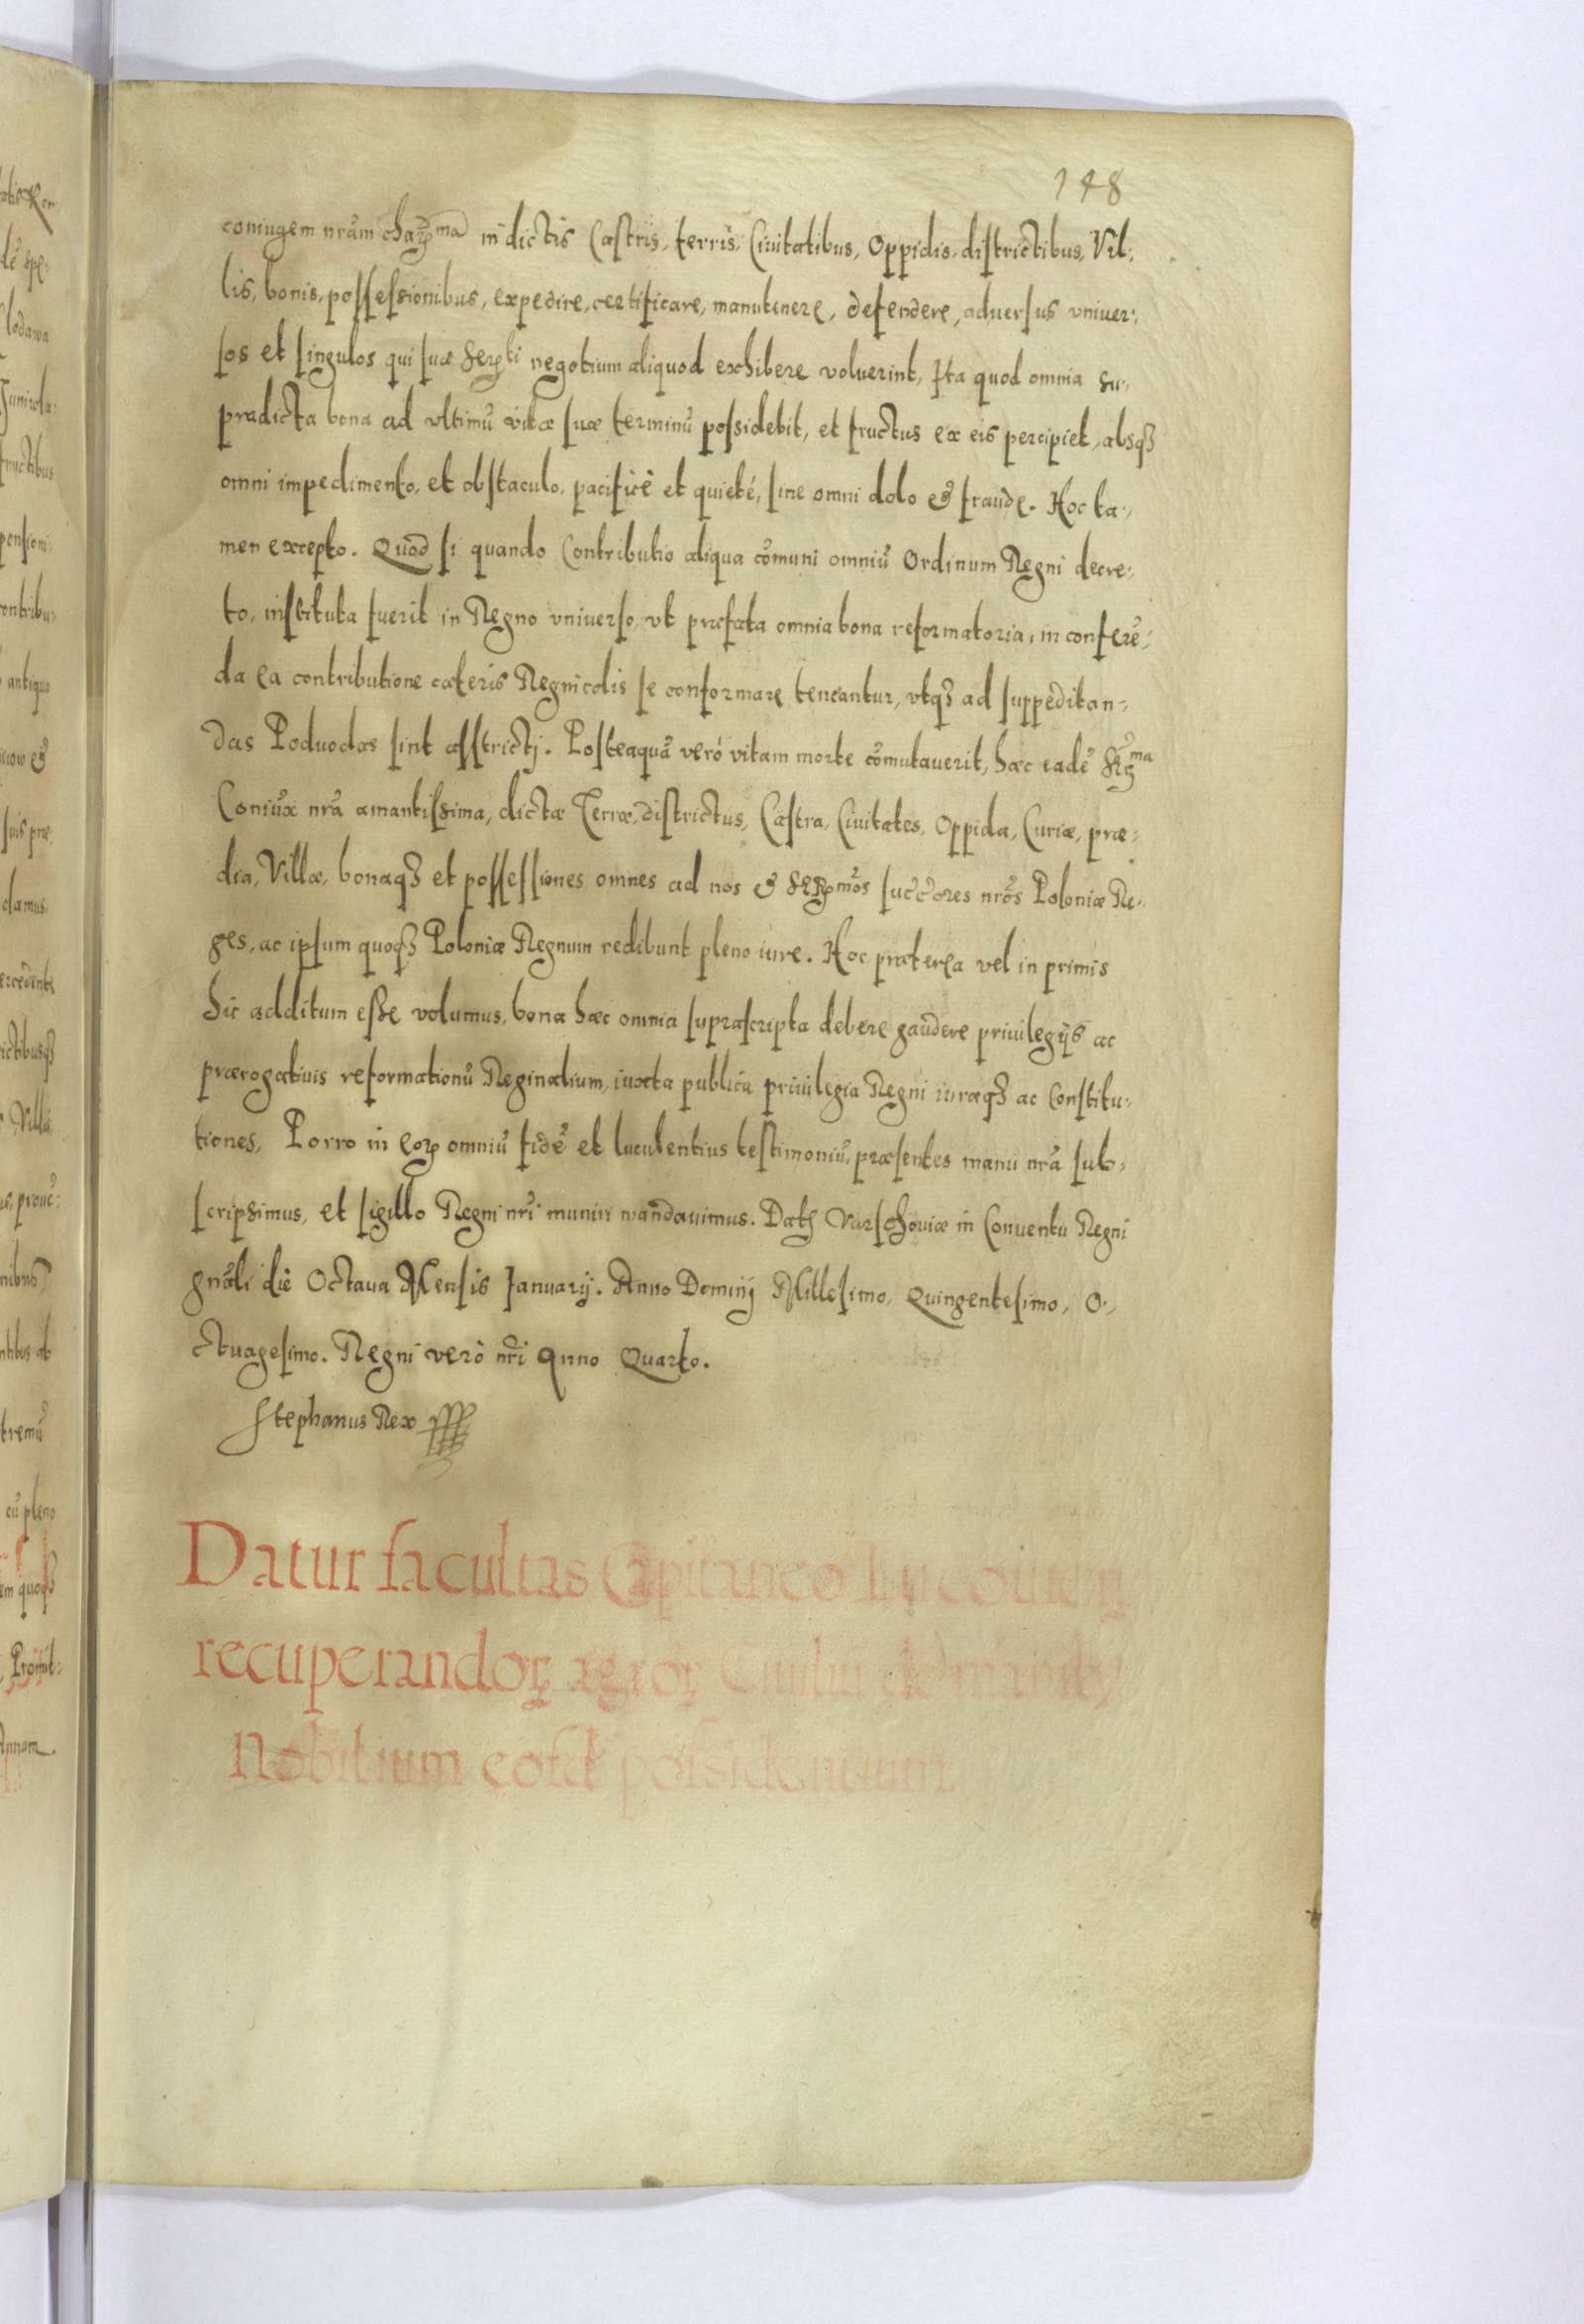 148
coniugem nrãm chaꝝma in dictis Castris, terris, Ciuitatibus, Oppidis, districtibus, Vil:,
lis, bonis, possessionibus, expedire, certificare, manutenere, defendere, aduersus vniuer:,
sos et singulos qui suæ Serꝝti negotium aliquod exhibere voluerint, Ita quod omnia su:,
pradicta bona ad vltimũ vitæ suæ terminũ possidebit, et fructus ex eis percipiet, absqꝫ
omni impedimento, et obstaculo, pacificè et quieté, sine omni dolo & fraude. Hoc ta:,
men excepto. Quod si quando Contributio aliqua cõmuni omniũ Ordinum Regni decre:,
to, instituta fuerit in Regno vniuerso, vt præfata omnia bona reformatoria, in conferẽ:,
da ea contributione cæteris Regnicolis se conformare teneantur, vtqꝫ ad suppeditan:,
das Poduodas sint asstrictj. Posteaquã veró vitam morte cõmutauerit, hæc eadẽ Sꝝma
Coniux nrã amantissima, dictæ Terræ, districtus, Castra, Ciuitates, Oppida, Curiæ, præ:,
dia, Villæ, bonaqꝫ et possessiones omnes ad nos & Serꝝmos succõres nrõs Poloniæ Re:,
ges, ac ipsum quoqꝫ Poloniæ Regnum redibunt pleno iure. Hoc præterea vel in primis
hic additum esse volumus, bona hæc omnia suprascripta debere gaudere priuilegijs ac
prærogatiuis reformationũ Reginalium, iuxta publica priuilegia Regni iuraqꝫ ac Constitu:,
tiones, Porro in eoꝝ omniũ fidẽ et luculentius testimoniũ, præsentes manu nrã sub:,
scripsimus, et sigillo Regni nrĩ muniri mandauimus. Datꝭ Varschouiæ in Conuentu Regni
gnãli die Octaua Mensis Januarij. Anno Dominj Millesimo, Quingentesimo, O:,
ctuagesimo. Regni verò nrĩ anno Quarto.
Stephanus Rex
Datur facultas Capitaneo
recuperandoꝝ agroꝝ
Nobilium possidentium